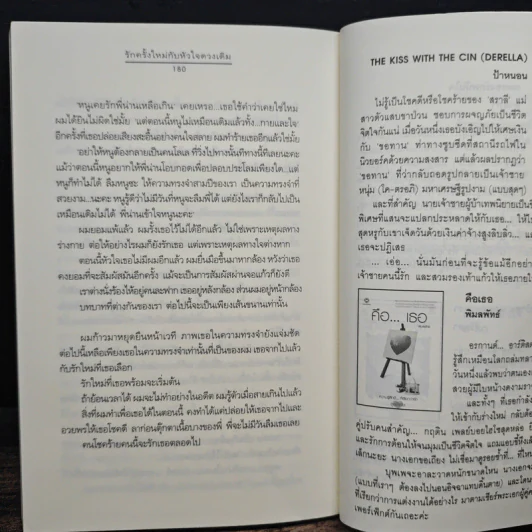 รักครั้งใหม่กับหัวใจดวงเดิม
180
หนูเคยรักพี่น่านเหลือเกิน' เคยเหรอ...เธอใช้คำว่าเคยใช่ไหม
ผมได้ยินไม่ผิดใช่มั้ย 'แต่ตอนนี้หนูไม่เหมือนเดิมแล้วทั้ง...กายและใจ'
อีกครั้งที่เธอปล่อยเสียงสะอื้นอย่างคนใจสลาย ผมทำร้ายเธออีกแล้วใช่มั้ย
'อย่าให้หนูต้องกลายเป็นคนโลเล ที่วิ่งไปทางนั้นทีทางนี้ทีเลยนะคะ
แม้ว่าตอนนี้หนูอยากให้พี่น่านโอบกอดเพื่อปลอบประโลมเพียงใด...แต่
หนูก็ทำไม่ได้ ลืมหนูซะ ให้ความรักสามปีของเรา เป็นความทรงจำที่
สวยงาม..นะคะ หนูรู้ดีว่าไม่มีวันที่หนูจะลืมพี่ได้ แต่ยังไงเราก็กลับไปเป็น
เหมือนเดิมไม่ได้ พี่น่านเข้าใจหนูนะคะ'
ผมยอมแพ้แล้ว ผมรั้งเธอไว้ไม่ได้อีกแล้ว ไม่ใช่เพราะเหตุผลทาง
ร่างกาย ต่อให้อย่างไรผมก็ยังรักเธอ แต่เพราะเหตุผลทางใจต่างหาก
ตอนนี้หัวใจเธอไม่มีผมอีกแล้ว ผมยื่นมือขึ้นมาหากล้อง หวังว่าเธอ
คงยอมที่จะสัมผัสมันอีกครั้ง แม้จะเป็นการสัมผัสผ่านจอแก้วก็ยังดี
เราต่างนั่งร้องไห้อยู่คนละฟาก เธออยู่หลังกล้อง ส่วนผมอยู่หน้ากล้อง
บทบาทที่ต่างกันของเรา ต่อไปนี้จะเป็นเพียงเส้นขนานเท่านั้น
ผมก้าวมาหยุดยืนหน้าเวที ภาพเธอในความทรงจำยังแจ่มชัด
ต่อไปนี้เหลือเพียงเธอในความทรงจำเท่านั้นที่เป็นของผม เธอจากไปแล้ว
กับรักใหม่ที่เธอเลือก
รักใหม่ที่เธอพร้อมจะเริ่มต้น
ถ้าย้อนเวลาได้ ผมจะไม่ทำอย่างในอดีต ผมรู้ตัวเมื่อสายเกินไปแล้ว
สิ่งที่ผมทำเพื่อเธอได้ในตอนนี้ คงทำได้แค่ปล่อยให้เธอจากไปและ
อวยพรให้เธอโชคดี ลาก่อนตุ๊กตาเนื้อบางของพี่ พี่จะไม่มีวันลืมเธอเลย
คนโชคร้ายคนนี้จะรักเธอตลอดไป
THE KISS WITH THE CIN (DERELLA)
ป้าหนอน
ไม่รู้เป็นโชคดีหรือโชคร้ายของ 'สราลี' แม่
สาวตัวแสบขาป่วน ชอบการผจญภัยเป็นชีวิต
จิตใจกันแน่ เมื่อวันหนึ่งเธอบังเอิญไปให้เศษเงิน
กับ 'ขอทาน' ท่าทางซูบซีดที่สถานีรถไฟใน
นิวยอร์คด้วยความสงสาร แต่แล้วผลปรากฏว่า
'ขอทาน' ที่ว่ากลับถอดรูปกลายเป็นเจ้าชาย
หนุ่ม (โค-ตรอภิ) มหาเศรษฐีรูปงาม (แบบสุดๆ)
และที่สำคัญ นายเจ้าชายผู้บ้าเทพนิยายเป็น
พิเศษที่แสนจะแปลกประหลาดให้กับเธอ...
สุดหรูกับเราเจ็ดวันด้วยเงินค่าจ้างสูงลิบลิ่ว...
เธอจะปฏิเสธ
... เธอ... นั่นมันก่อนที่จะรู้ซ้อแม้อีกอย่าง
เจ้าชายคนนี้รัก และสวมรองเท้าแก้วให้เธอภาย
คือเธอ
พิมลพัทธ์
คือ... เธอ
อรกานต์...
รู้สึกเหมือนโลกถล่ม
วันหนึ่งแล้วพบว่าตนเอง
สวยผู้มีใบหน้างดงาม
และทั้งๆ ที่เธอกำลัง
ให้เข้ากับร่างใหม่ กลับต้อง
คู่ปรับคนสำคัญ... กฤติน เพลย์บอยไฮโซสุดหล่อ
และรักการต้อนให้จนมุมเป็นชีวิตจิตใจ
เล็กนะยะ นางเอกขอเถียง
บุพเพจะอาละวาดหนักขนาดไหน นางเอก
(แบบที่เราๆ ต้องลงไปนอนอิจฉาแทบดิ้นตาย)
ที่เรียกว่าการแต่งงานได้อย่างไร
เพอร์เฟ็กต์กันเถอะค่ะ